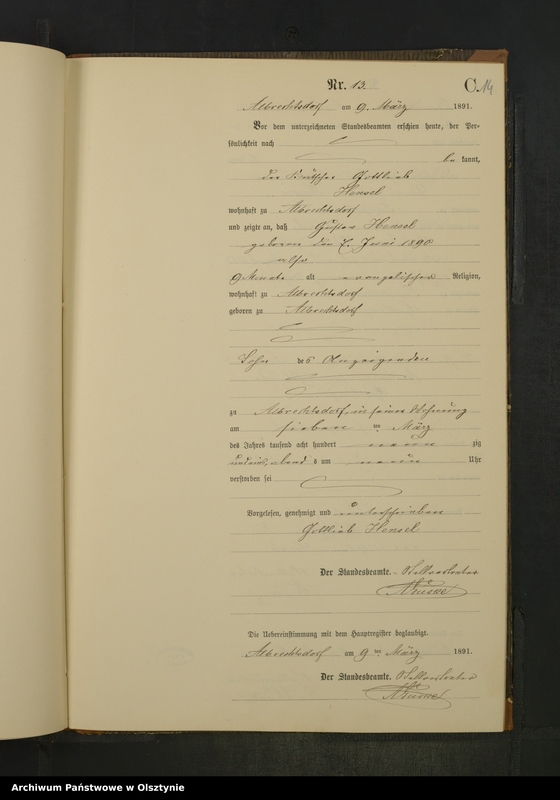 Nr. 13.
C. 14
Albrechtsdorf am 9. März 1891.
Vor dem unterzeichneten Standesbeamten erschien heute, der Per-
sönlichkeit nach
be kannt,
der Gottlieb
Hensel
wohnhaft zu Albrechtsdorf
und zeigte an, daß Gustav Hensel
geboren den Juni 1890
also
9 Monate alt evangelischer Religion,
wohnhaft zu Albrechtsdorf
geboren zu Albrechtsdorf
Sohn des Anzeigenden
zu Albrechtsdorf, in seiner Wohnung
am sieben ten März
des Jahres tausend acht hundert neun zig
und eins, abend s um neun Uhr
verstorben sei
Vorgelesen, genehmigt und unterschrieben
Gottlieb Hensel
Der Standesbeamte.
Die Uebereinstimmung mit dem Hauptregister beglaubigt.
Albrechtsdorf am 9 ten März 1891.
Der Standesbeamte.
Archiwum Państwowe w Olsztynie